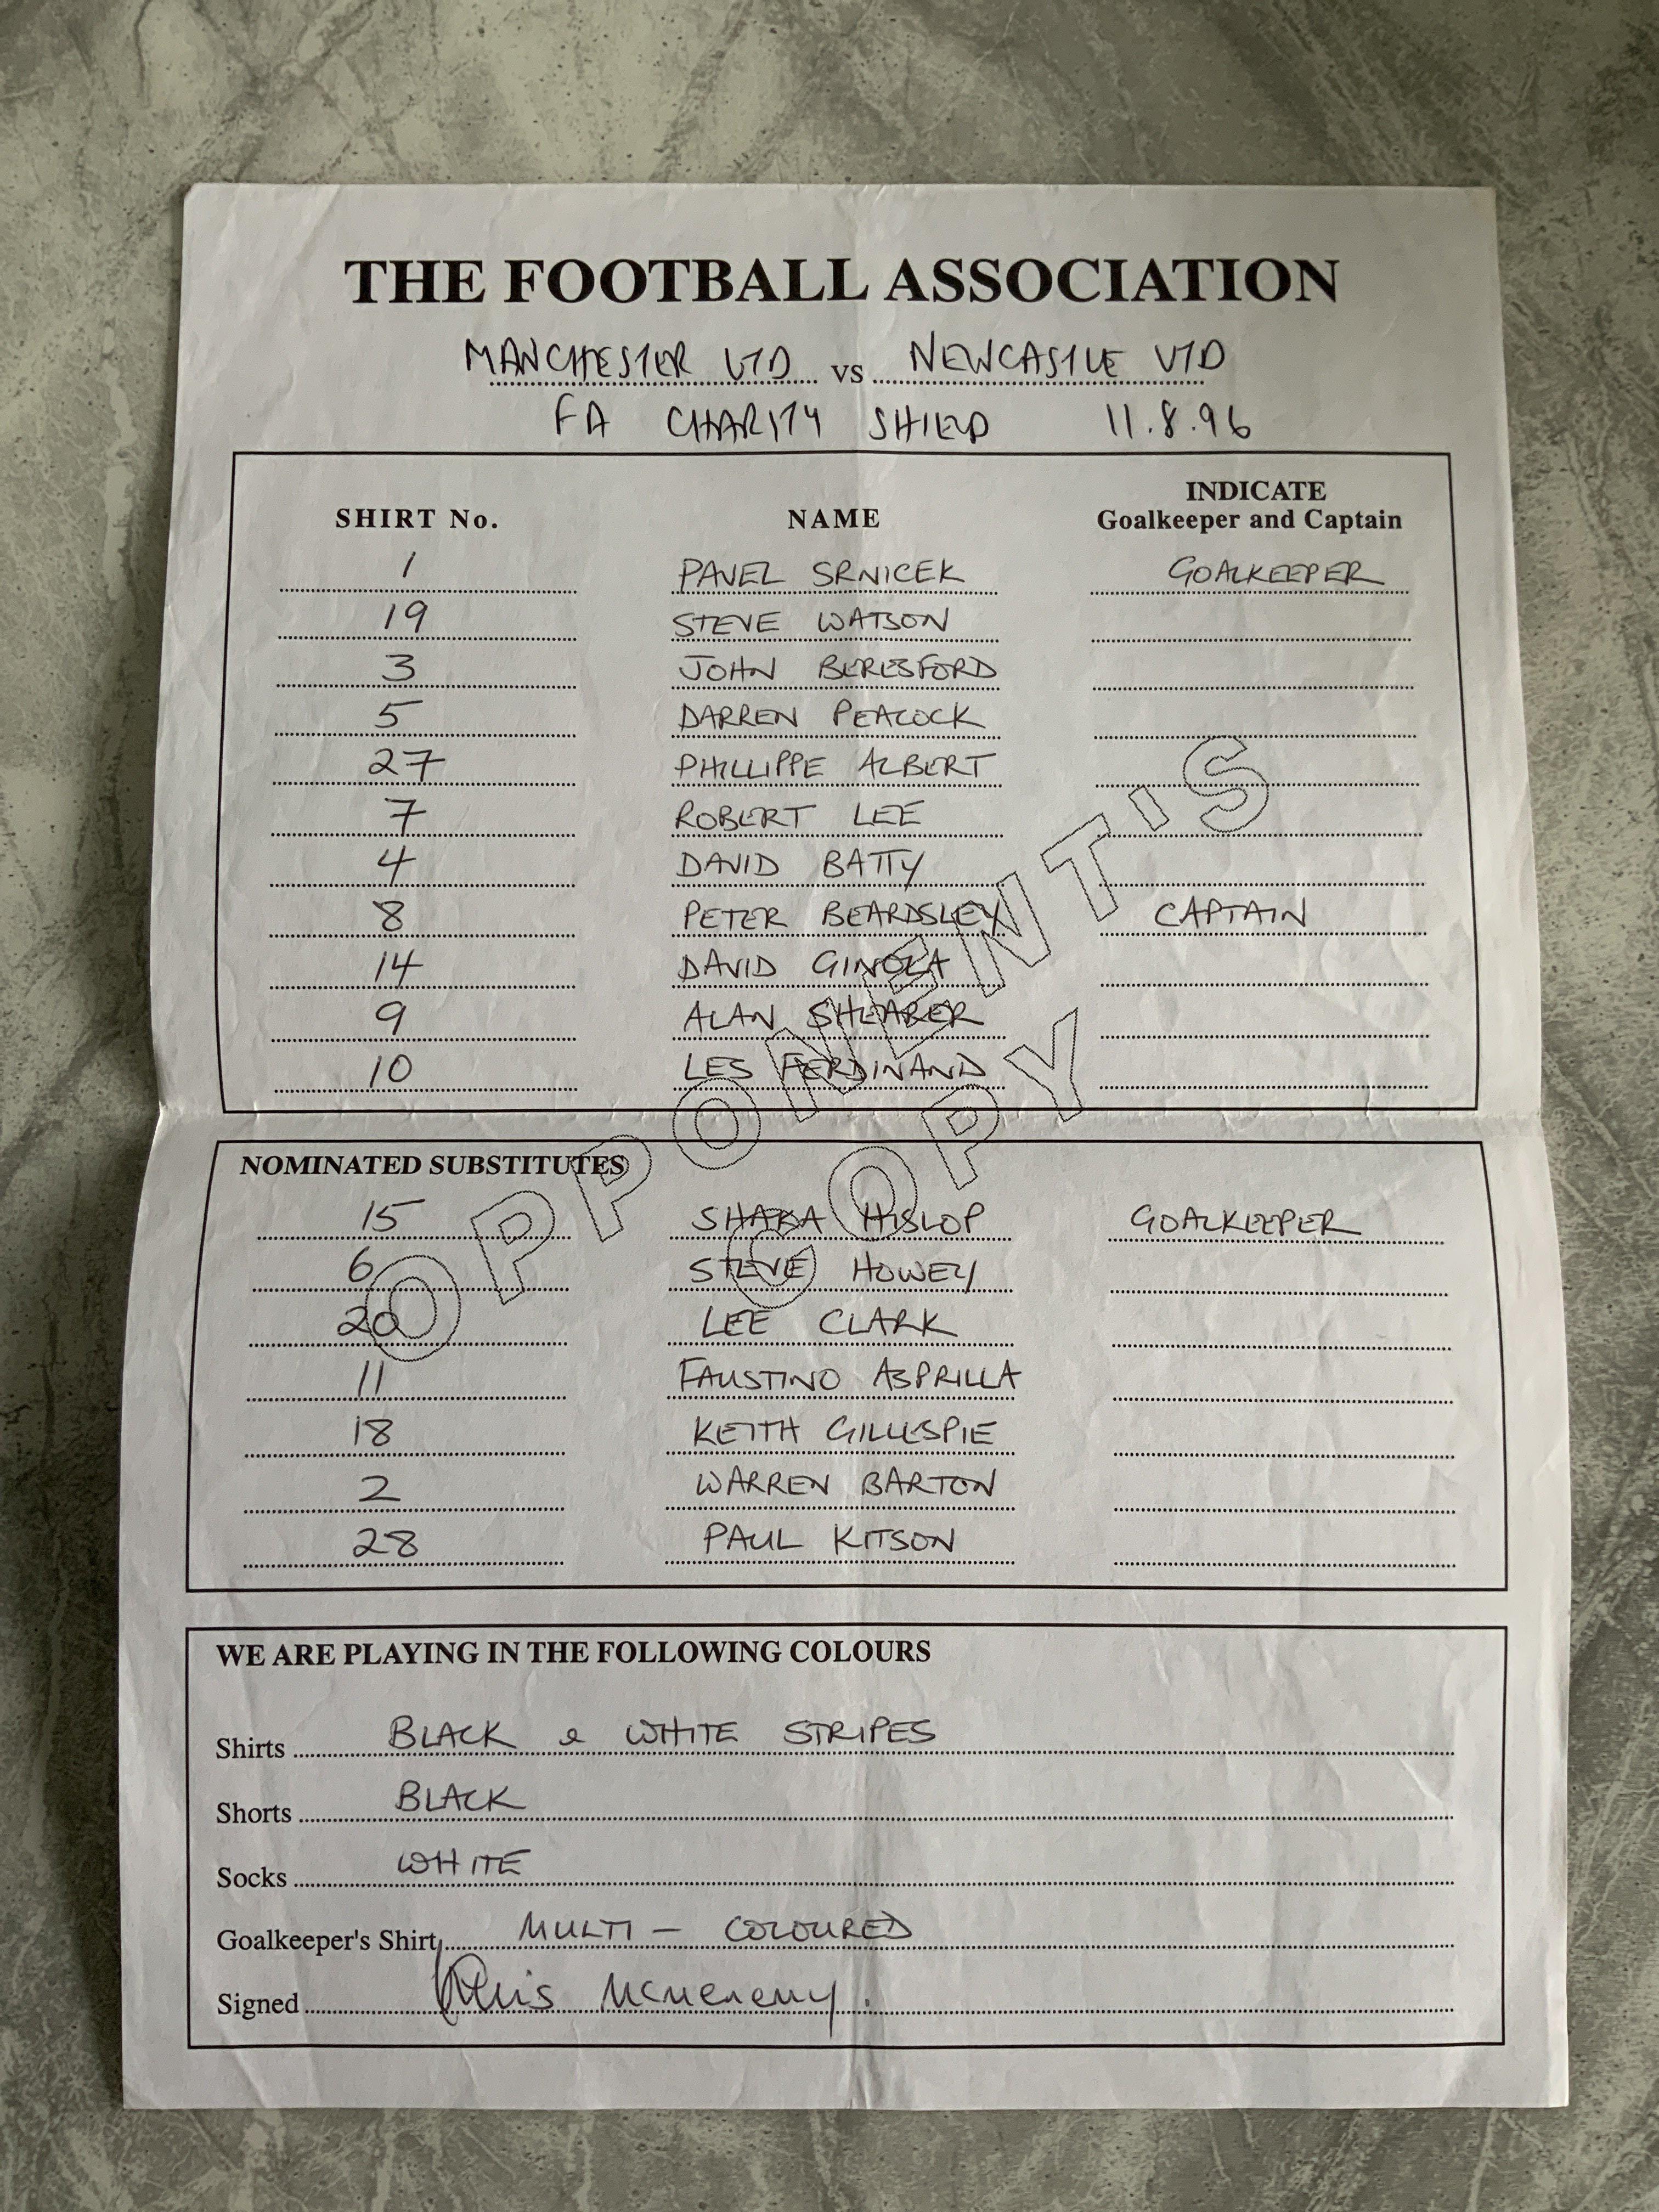 THE FOOTBALL ASSOCIATION
MANCHESTER UTD vs NEWCASTLE UTD
FA CHARITY SHIELD 11.8.96
INDICATE
SHIRT No. NAME Goalkeeper and Captain
1 PAVEL SRNICEK GOALKEEPER
19 STEVE WATSON
3 JOHN BERESFORD
5 DARREN PEACOCK
27 PHILLIPPE ALBERT
7 ROBERT LEE
4 DAVID BATTY
8 PETER BEARDSLEY CAPTAIN
14 DAVID GINOLA
9 ALAN SHEARER
10 LES FERDINAND
OPPONENT'S
COPY
NOMINATED SUBSTITUTES
15 SHAKA HISLOP GOALKEEPER
6 STEVE HOWEY
20 LEE CLARK
11 FAUSTINO ASPRILLA
18 KEITH GILLESPIE
2 WARREN BARTON
28 PAUL KITSON
WE ARE PLAYING IN THE FOLLOWING COLOURS
Shirts BLACK & WHITE STRIPES
Shorts BLACK
Socks WHITE
Goalkeeper's Shirt MULTI - COLOURED
Signed McMenemy.